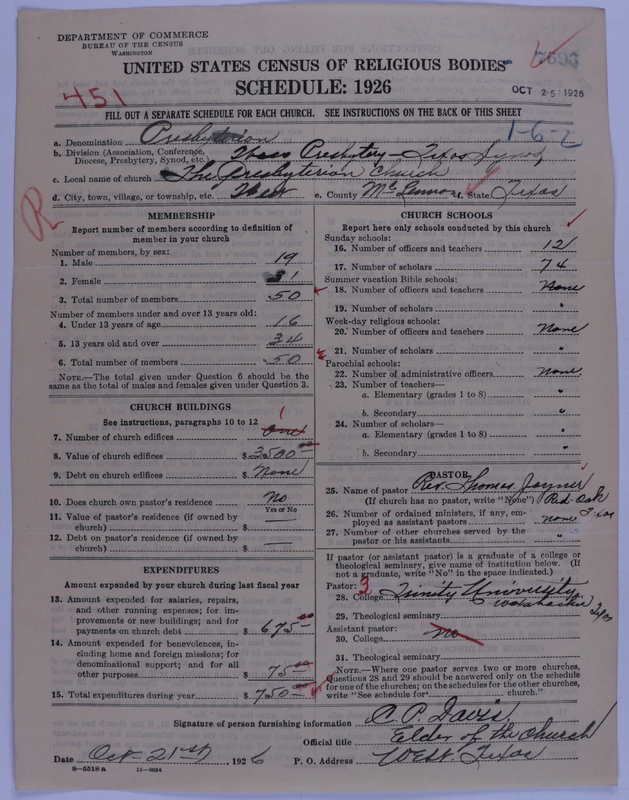 DEPARTMENT OF COMMERCE
BUREAU OF THE CENSUS
WASHINGTON
UNITED STATES CENSUS OF RELIGIOUS BODIES
SCHEDULE: 1926
OCT 25 1926
451
FILL OUT A SEPARATE SCHEDULE FOR EACH CHURCH. SEE INSTRUCTIONS ON THE BACK OF THIS SHEET
1-6-2
a. Denomination Presbyterian
b. Division (Association, Conference, Diocese, Presbytery, Synod, etc.) Presbytery - Texas Synod
c. Local name of church The Presbyterian Church
d. City, town, village, or township, etc. West e. County McLennan f. State Texas
R
MEMBERSHIP
Report number of members according to definition of
member in your church
Number of members, by sex:
1. Male 19
2. Female 31
3. Total number of members 50
Number of members under and over 13 years old:
4. Under 13 years of age 16
5. 13 years old and over 34
6. Total number of members 50
NOTE.—The total given under Question 6 should be the
same as the total of males and females given under Question 3.
CHURCH BUILDINGS
See instructions, paragraphs 10 to 12
7. Number of church edifices One 1
8. Value of church edifices $ 3500.00
9. Debt on church edifices $ None
10. Does church own pastor's residence No
Yes or No
11. Value of pastor's residence (if owned by
church) $
12. Debt on pastor's residence (if owned by
church) $
EXPENDITURES
Amount expended by your church during last fiscal year
13. Amount expended for salaries, repairs,
and other running expenses; for im-
provements or new buildings; and for
payments on church debt $ 675.00
14. Amount expended for benevolences, in-
cluding home and foreign missions; for
denominational support; and for all
other purposes $ 75.00
15. Total expenditures during year $ 750.00
CHURCH SCHOOLS
Report here only schools conducted by this church
Sunday schools:
16. Number of officers and teachers 12
17. Number of scholars 74
Summer vacation Bible schools:
18. Number of officers and teachers None
19. Number of scholars "
Week-day religious schools:
20. Number of officers and teachers None
21. Number of scholars "
Parochial schools:
22. Number of administrative officers None
23. Number of teachers—
a. Elementary (grades 1 to 8) "
b. Secondary "
24. Number of scholars—
a. Elementary (grades 1 to 8) "
b. Secondary "
PASTOR
25. Name of pastor Rev. Thomas Joyner
(If church has no pastor, write "None") Red Oak
Texas
26. Number of ordained ministers, if any, em-
ployed as assistant pastors none
27. Number of other churches served by the
pastor or his assistants "
If pastor (or assistant pastor) is a graduate of a college or
theological seminary, give name of institution below. (If
not a graduate, write "No" in the space indicated.)
Pastor: 3
28. College Trinity University
Waxahachie Texas
29. Theological seminary
Assistant pastor:
30. College No
31. Theological seminary
NOTE.—Where one pastor serves two or more churches,
Questions 28 and 29 should be answered only on the schedule
for one of the churches; on the schedules for the other churches,
write "See schedule for church."
Signature of person furnishing information C. P. Davis
Official title Elder of the Church
Date Oct-21st, 1926 P. O. Address West. Texas
8-5518 a 11-9054